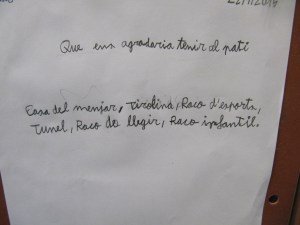 Que ens agradaria tenir al patí
Casa del menjar, Tirolina, Raco d'esports,
Tunel, Raco de llegir, Raco infantil.